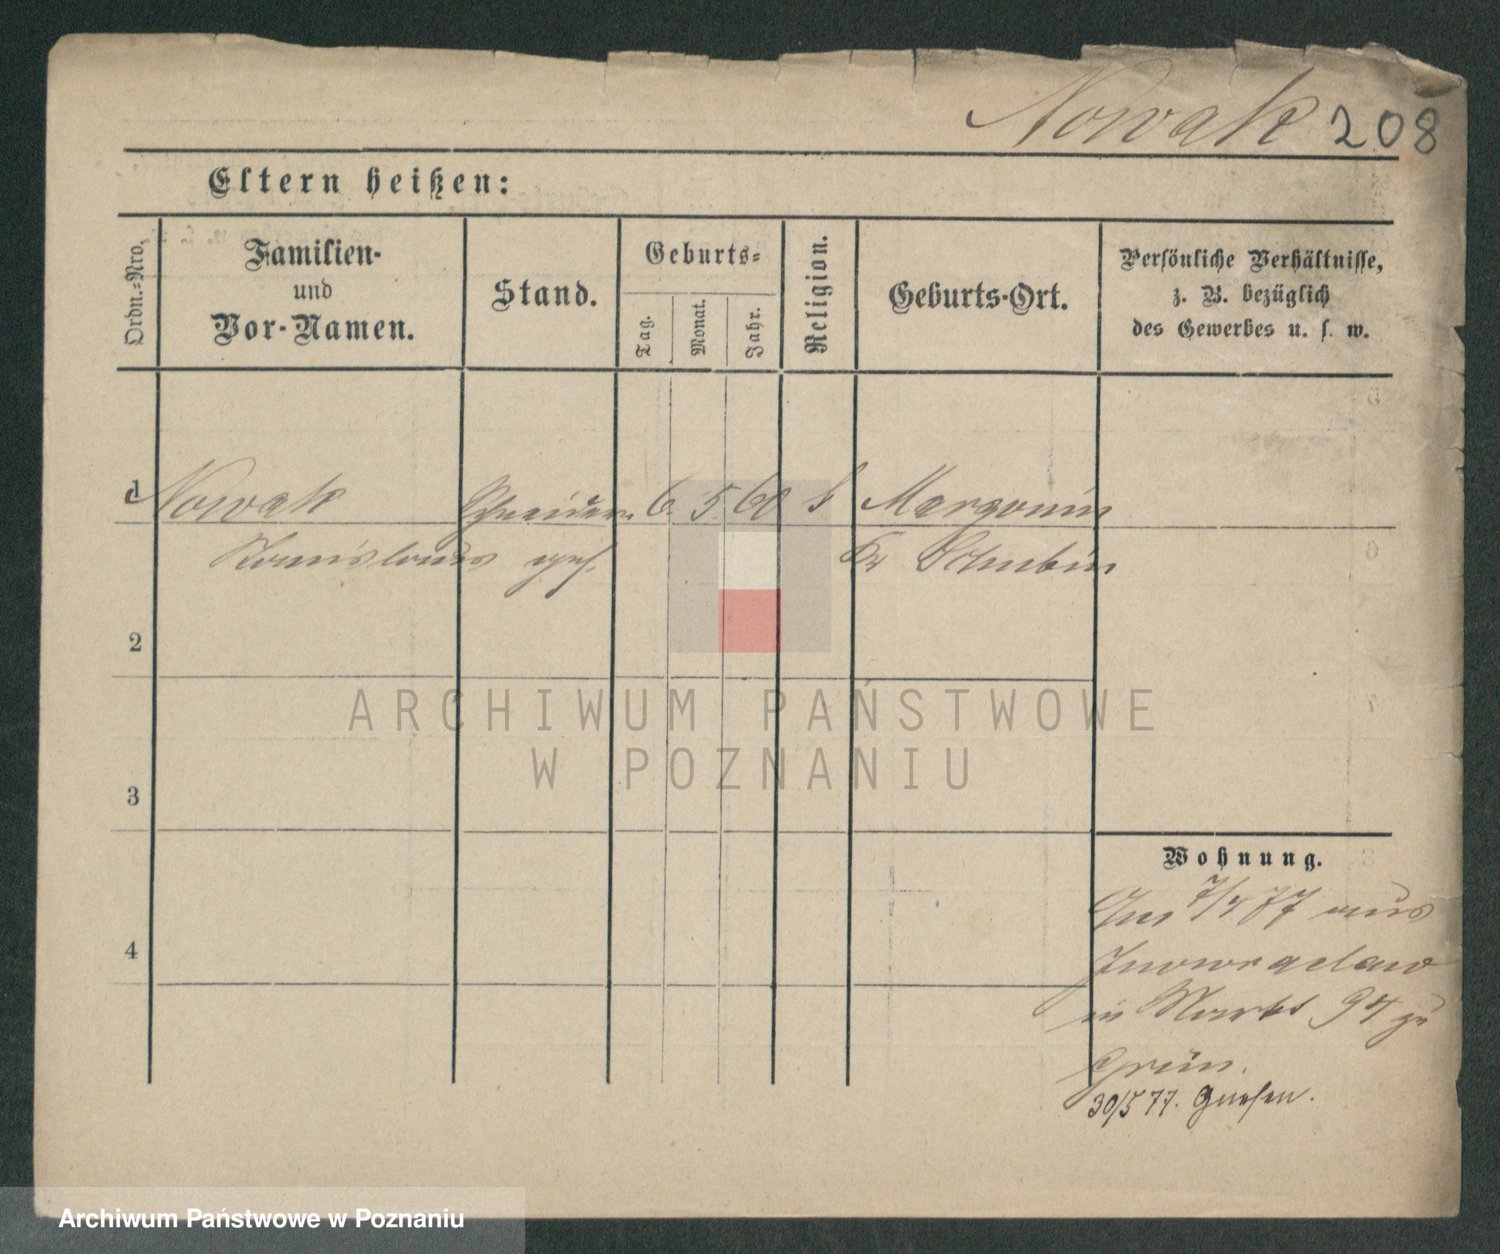 Nowak 208
Eltern heißen:
Ordn.-Nro.
Familien-
und
Vor-Namen.
Stand.
Geburts-
Tag.
Monat.
Jahr.
Religion.
Geburts-Ort.
Persönliche Verhältnisse,
z. B. bezüglich
des Gewerbes u. s. w.
1 Nowak Schneider 6. 5. 60 k Margonin
Stanislaus Kr Schubin
2
3
4
Wohnung.
7/4 77 aus
Inowraclaw
in Markt 94 zu
Grün.
30/5 77. Gnesen.
ARCHIWUM PAŃSTWOWE
W POZNANIU
Archiwum Państwowe w Poznaniu